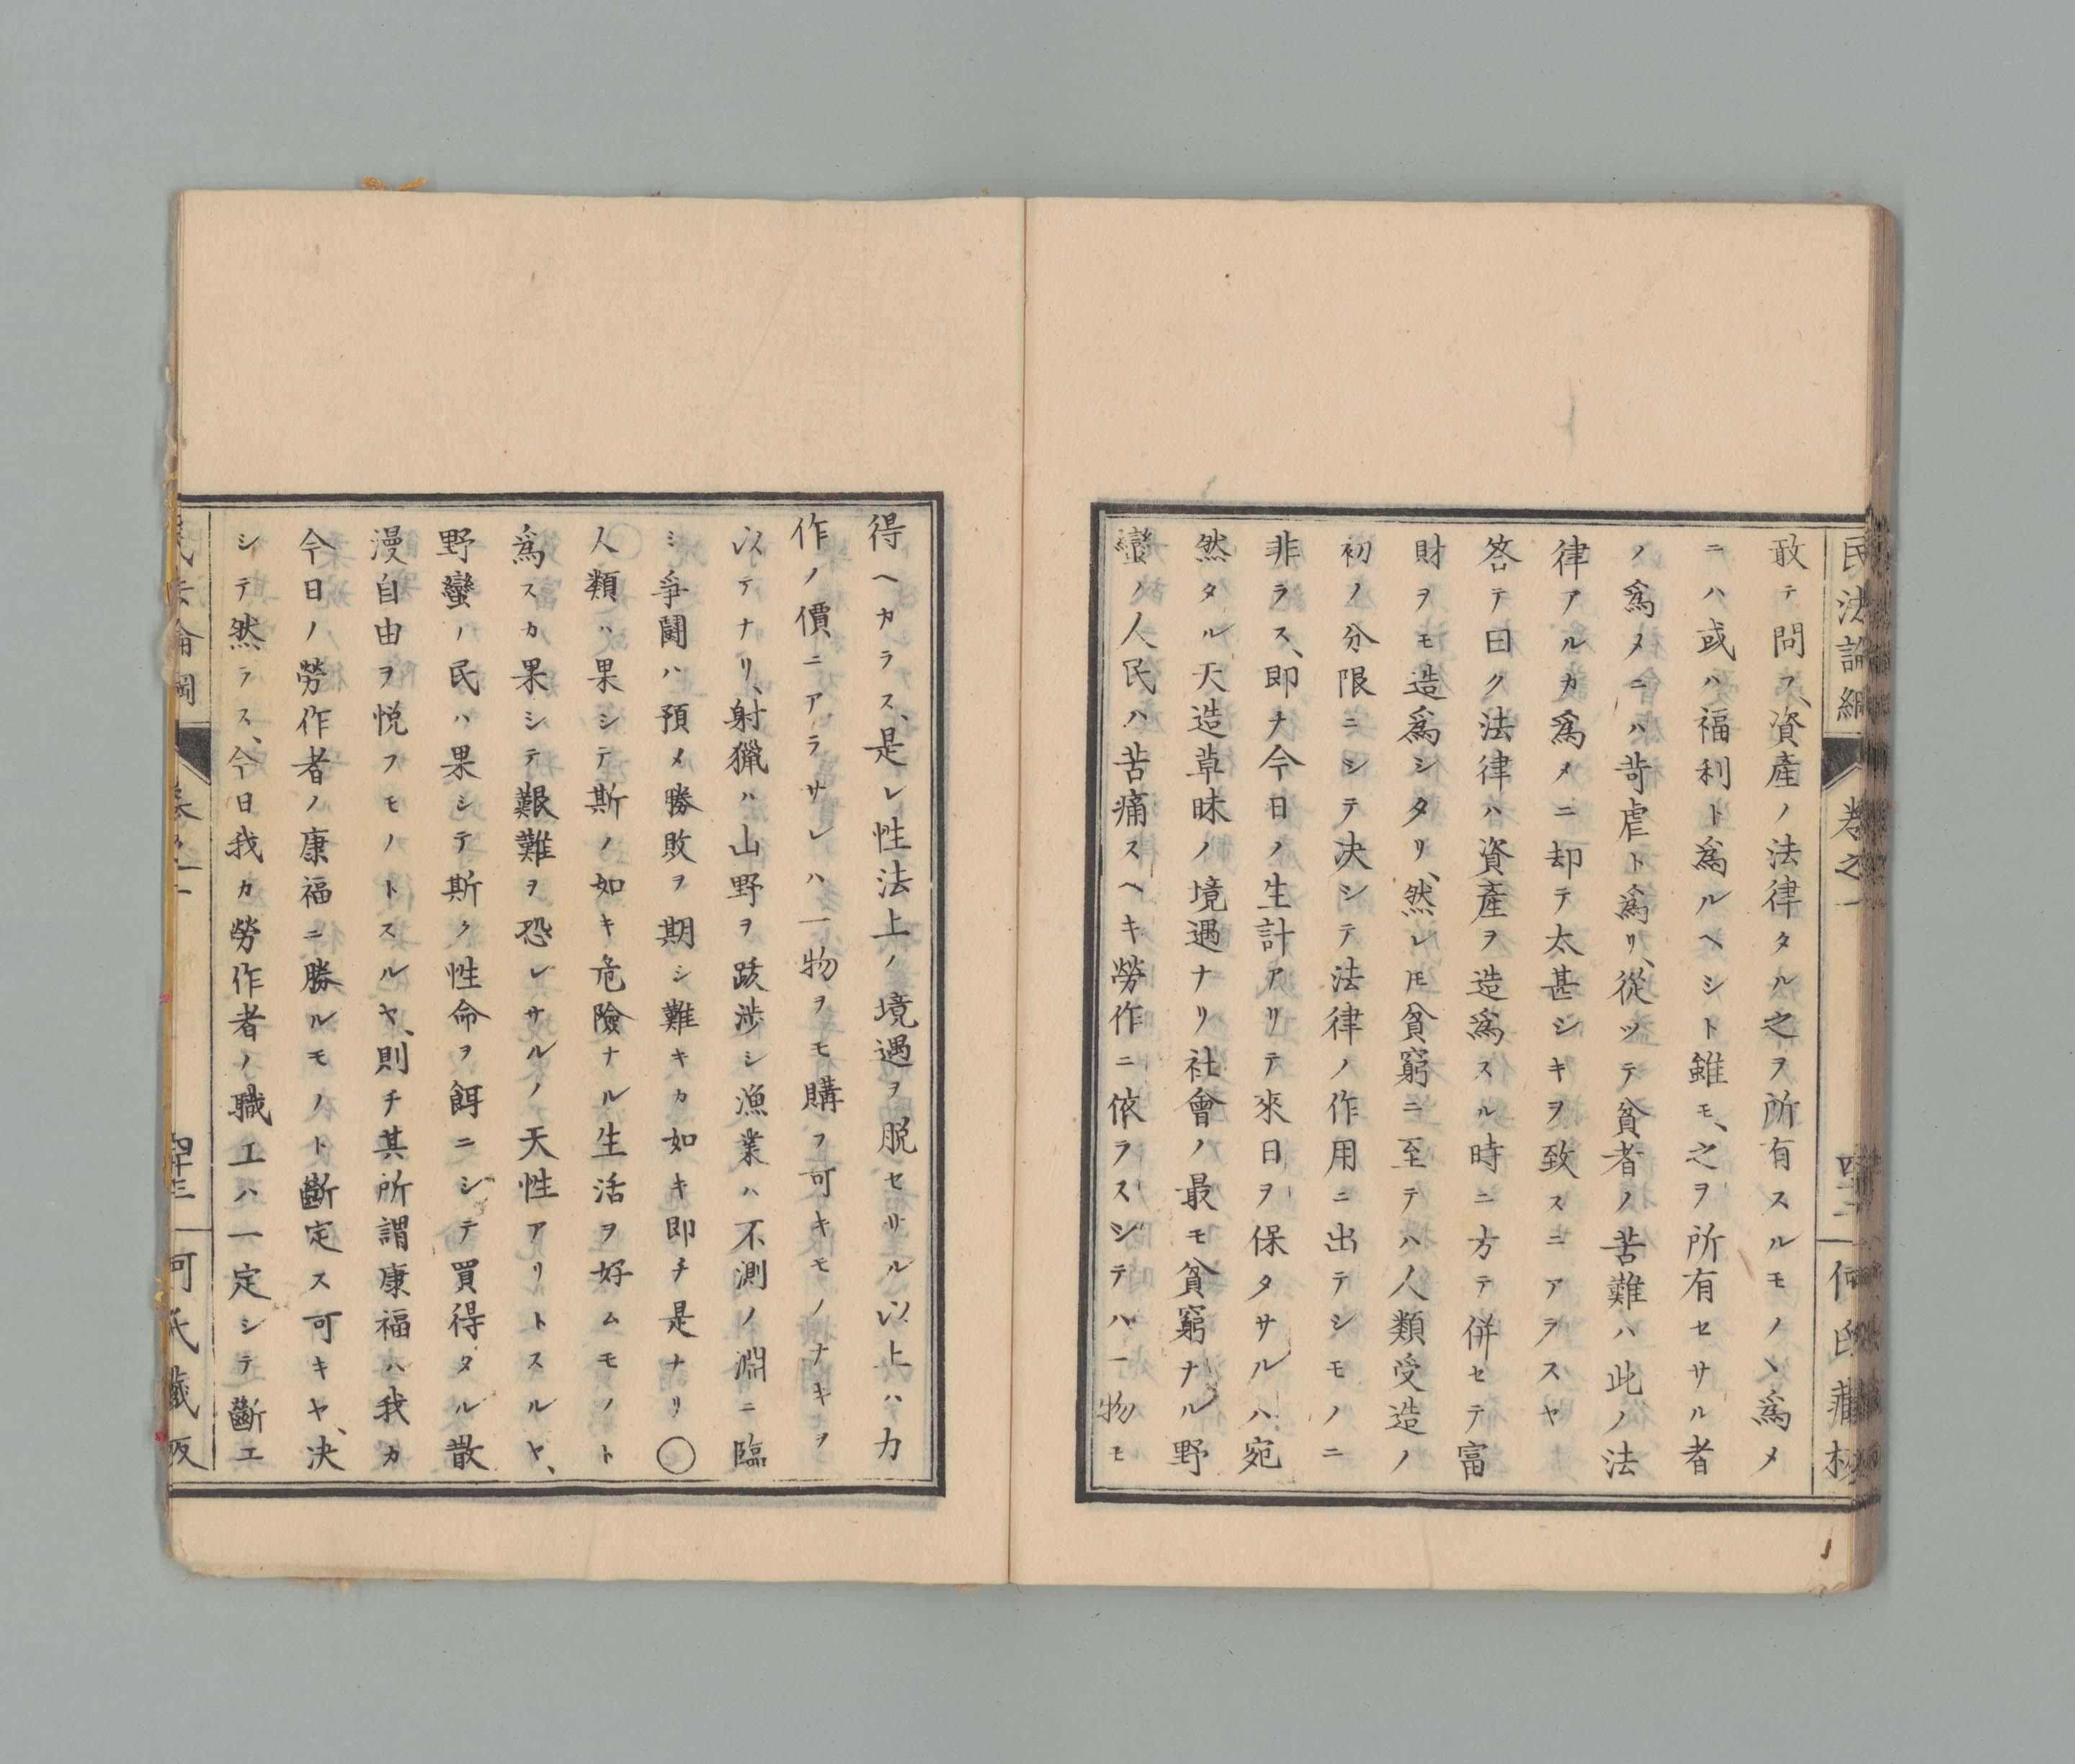 民法論綱 卷之一 四十二 何氏藏板
敢テ問フ、資產ノ法律タル之ヲ所有スルモノヽ爲メ
ニハ或ハ福利ト爲ルヘシト雖モ、之ヲ所有セサル者
ノ爲メニハ苛虐ト爲リ、從ツテ貧者ノ苦難ハ此ノ法
律アルカ爲メニ却テ太甚シキヲ致スニアラスヤ
答テ曰ク法律ハ資產ヲ造爲スル時ニ方テ併セテ富
財ヲモ造爲シタリ、然レ𪜈貧窮ニ至テハ人類受造ノ
初ノ分限ニシテ决シテ法律ノ作用ニ出テシモノニ
非ラス、即ナ今日ノ生計アリテ來日ヲ保タサルハ宛
然タル天造草昧ノ境遇ナリ社會ノ最モ貧窮ナル野
蠻ノ人民ハ苦痛スヘキ勞作ニ依ラスシテハ一物モ
得ヘカラス、是レ性法上ノ境遇ヲ脱セサル以上ハ力
作ノ價ニアラサレハ一物ヲモ購フ可キモノナキヲ
以テナリ、射獵ハ山野ヲ跋涉シ漁業ハ不測ノ淵ニ臨
ミ爭鬪ハ預メ勝敗ヲ期シ難キカ如キ即チ是ナリ〇
人類ハ果シテ斯ノ如キ危險ナル生活ヲ好ムモノト
爲スカ果シテ艱難ヲ恐レサルノ天性アリトスルヤ、
野蠻ノ民ハ果シテ斯ク性命ヲ餌ニシテ買得タル散
漫自由ヲ悦フモノトスルヤ、則チ其所謂康福ハ我カ
今日ノ勞作者ノ康福ニ勝ルモノト斷定ス可キヤ、决
シテ然ラス、今日我カ勞作者ノ職工ハ一定シテ斷エ
民法論綱 卷之一 四十三 何氏藏板